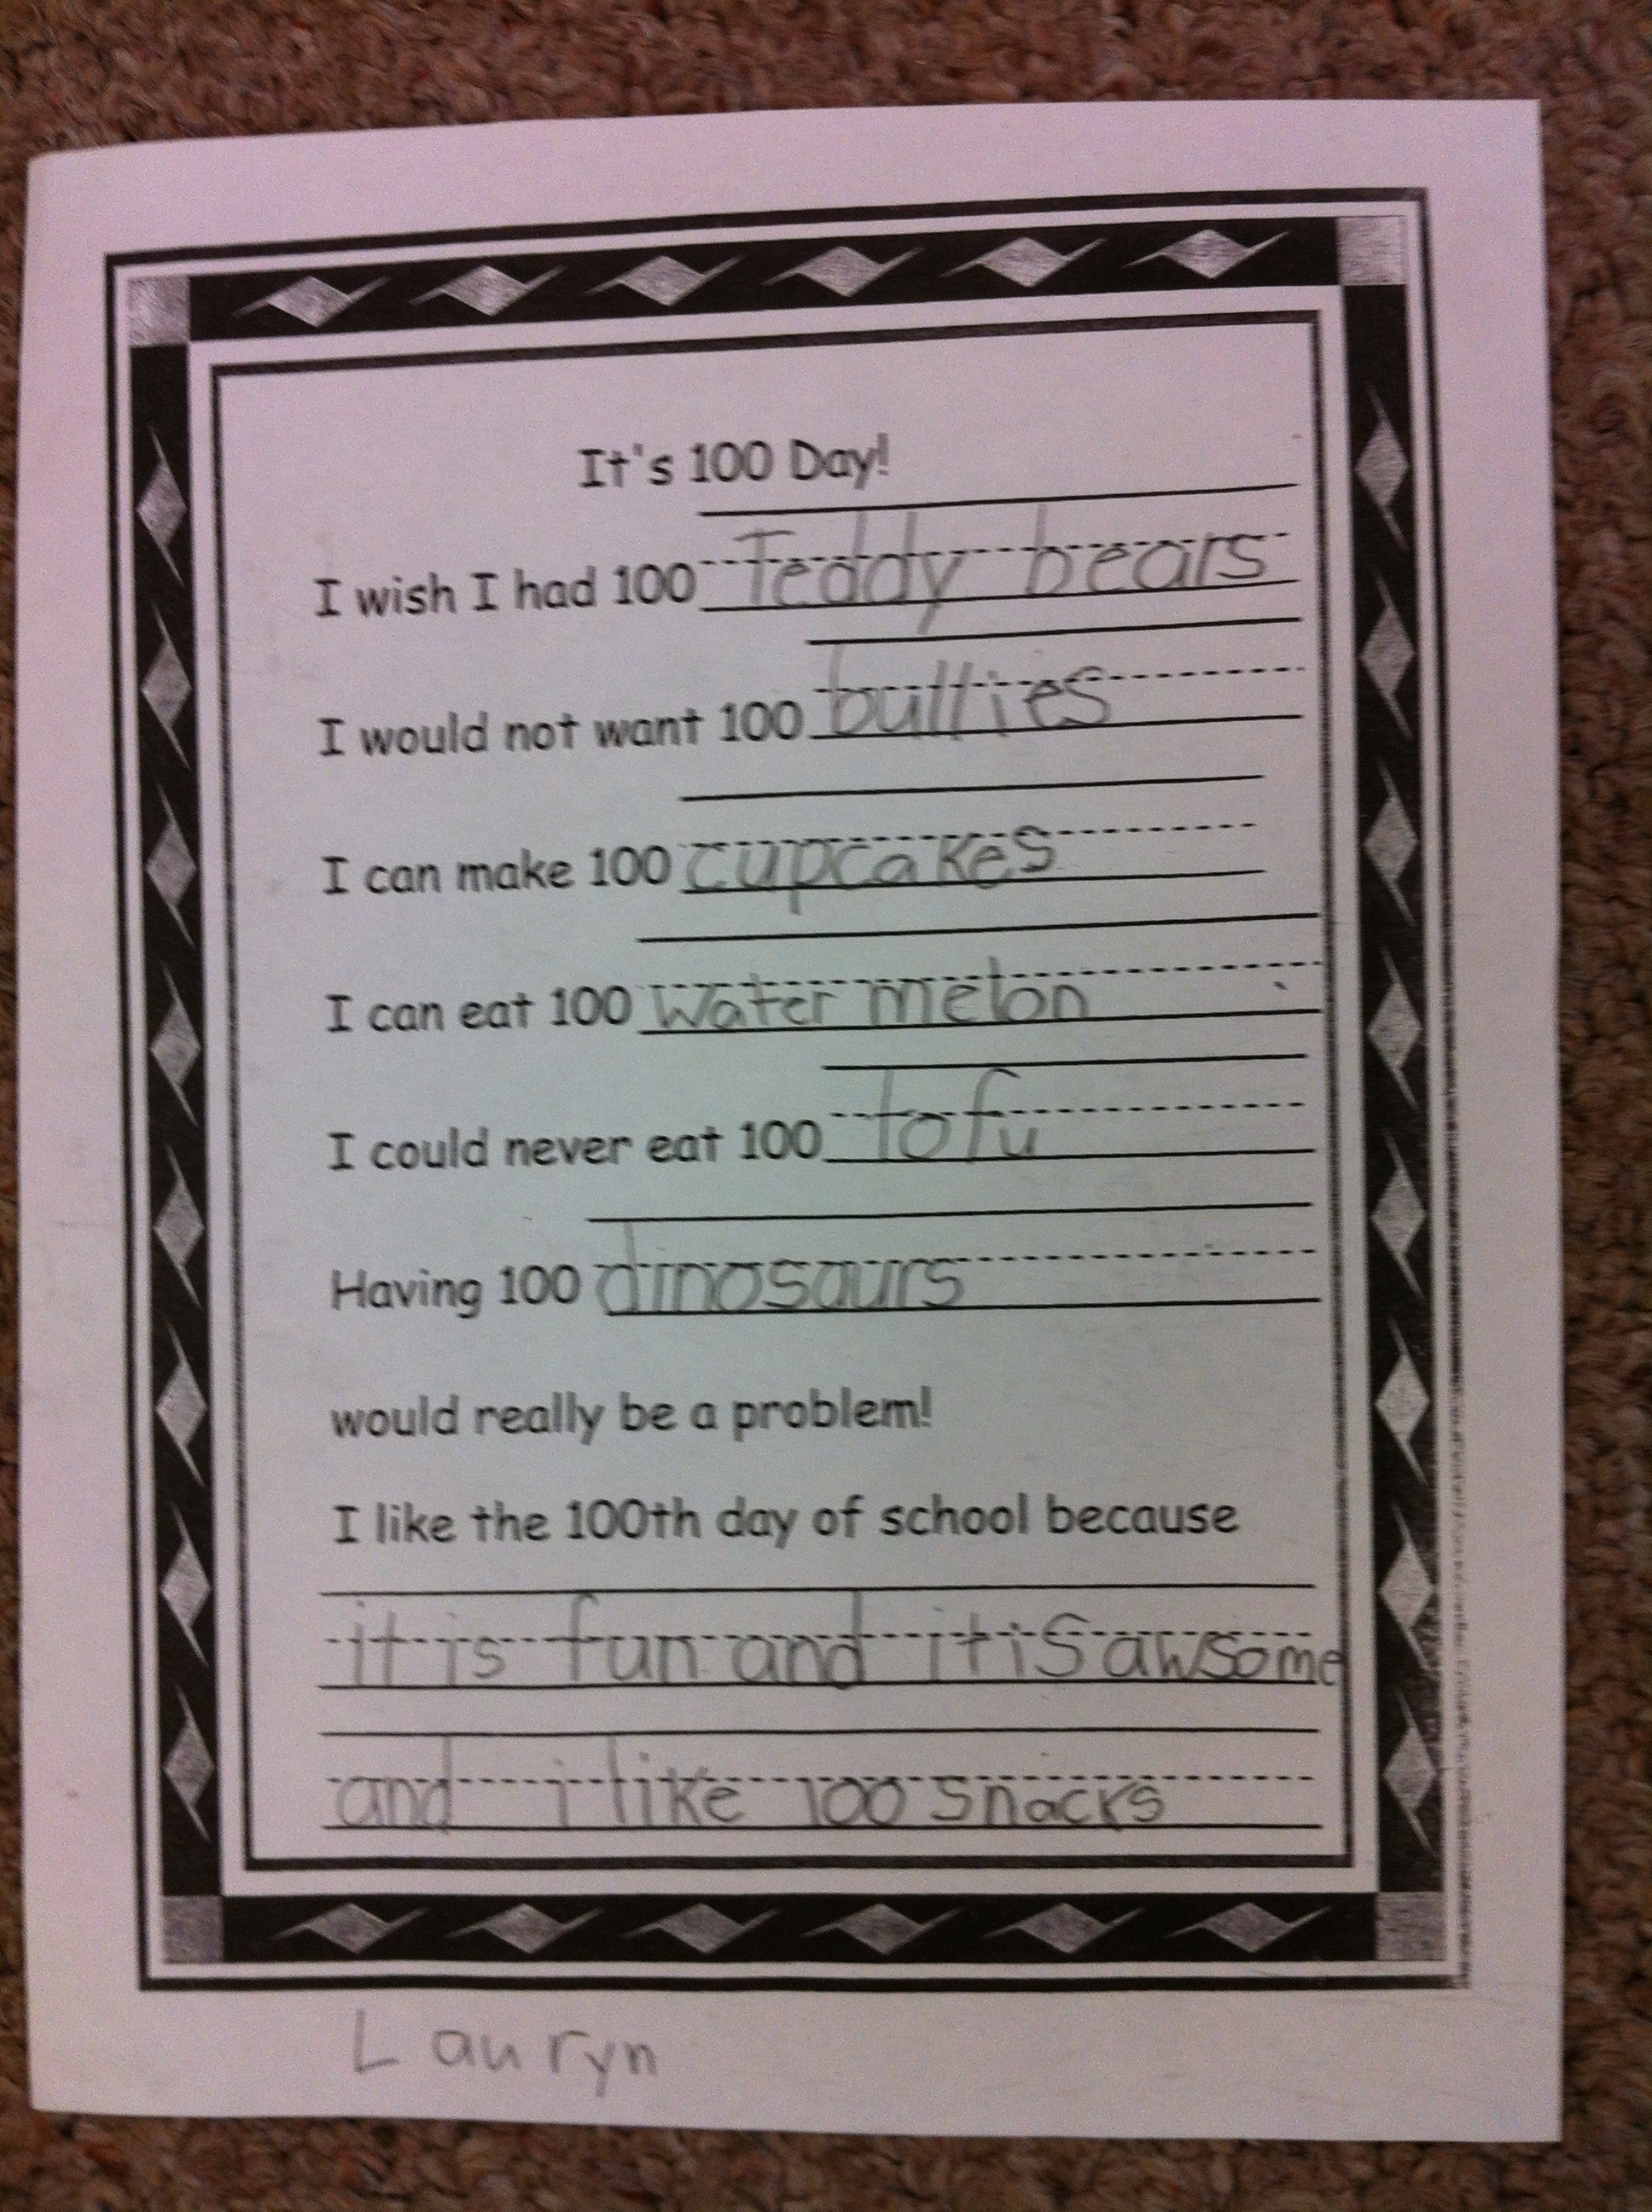 It's 100 Day!
I wish I had 100 Teddy bears
I would not want 100 bullies
I can make 100 cupcakes
I can eat 100 water melon
I could never eat 100 tofu
Having 100 dinosaurs
would really be a problem!
I like the 100th day of school because
it is fun and it is awsome
and i like 100 snacks
Lauryn